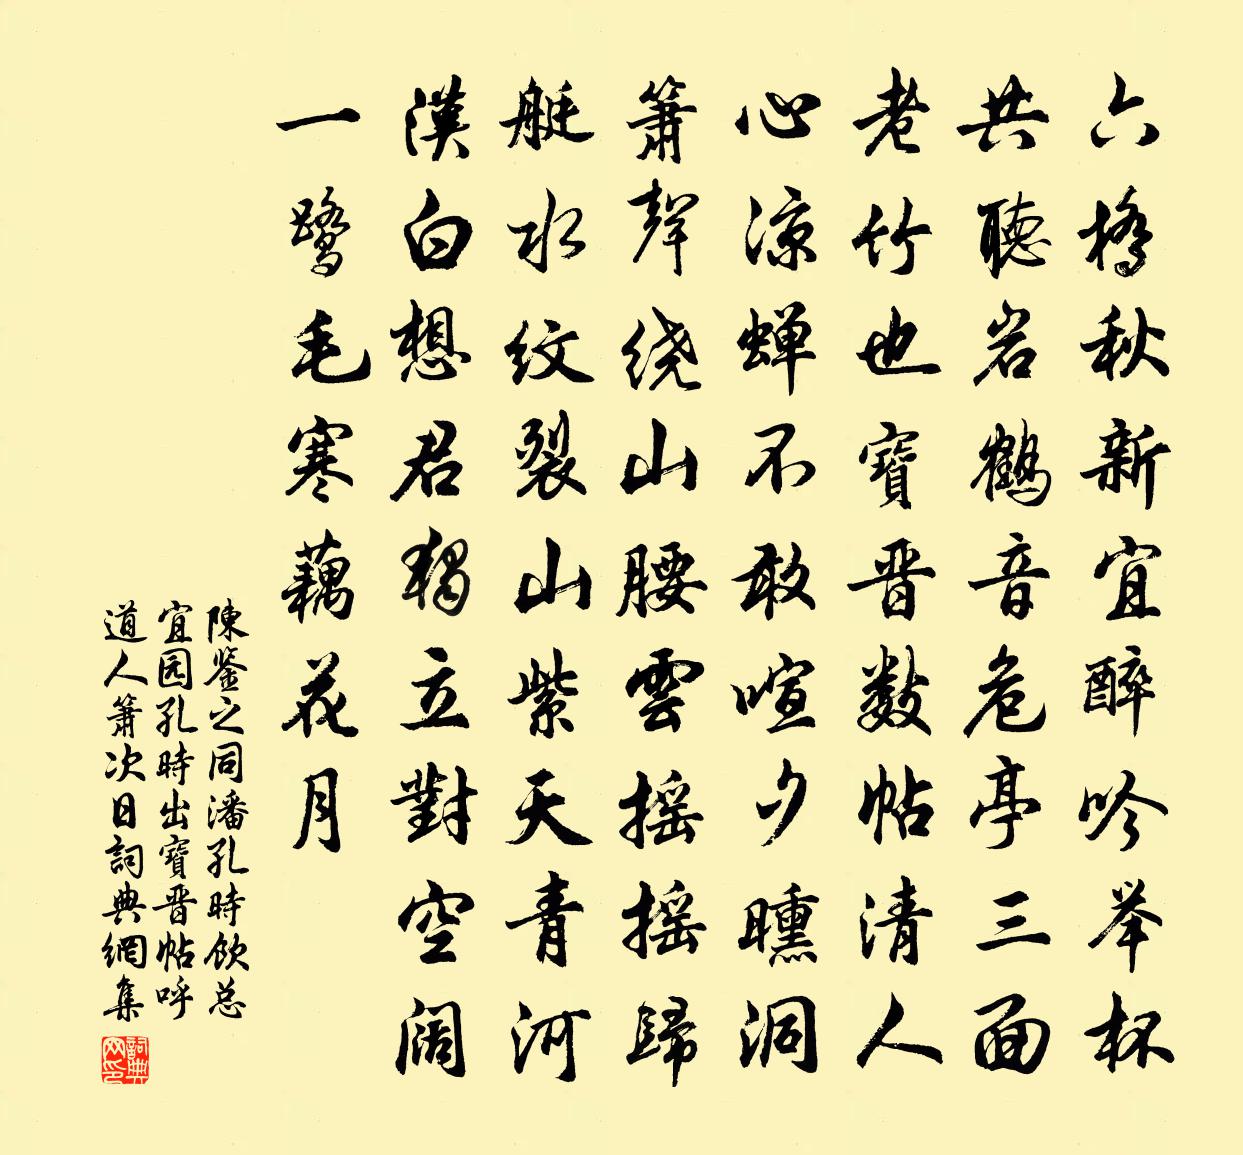 六橋秋新宜醉吟举杯
共聽岩鶴音危亭三面
老竹也寶晋数帖清人
心凉蝉不敢喧夕曛洞
簫聲绕山腰雲摇摇歸
艇水纹裂山紫天青河
漢白想君獨立對空阔
一鹭毛寒藕花月
陳鉴之同潘孔時飲总
宜园孔時出寶晋帖呼
道人簫次日詞典網集
詞典网印